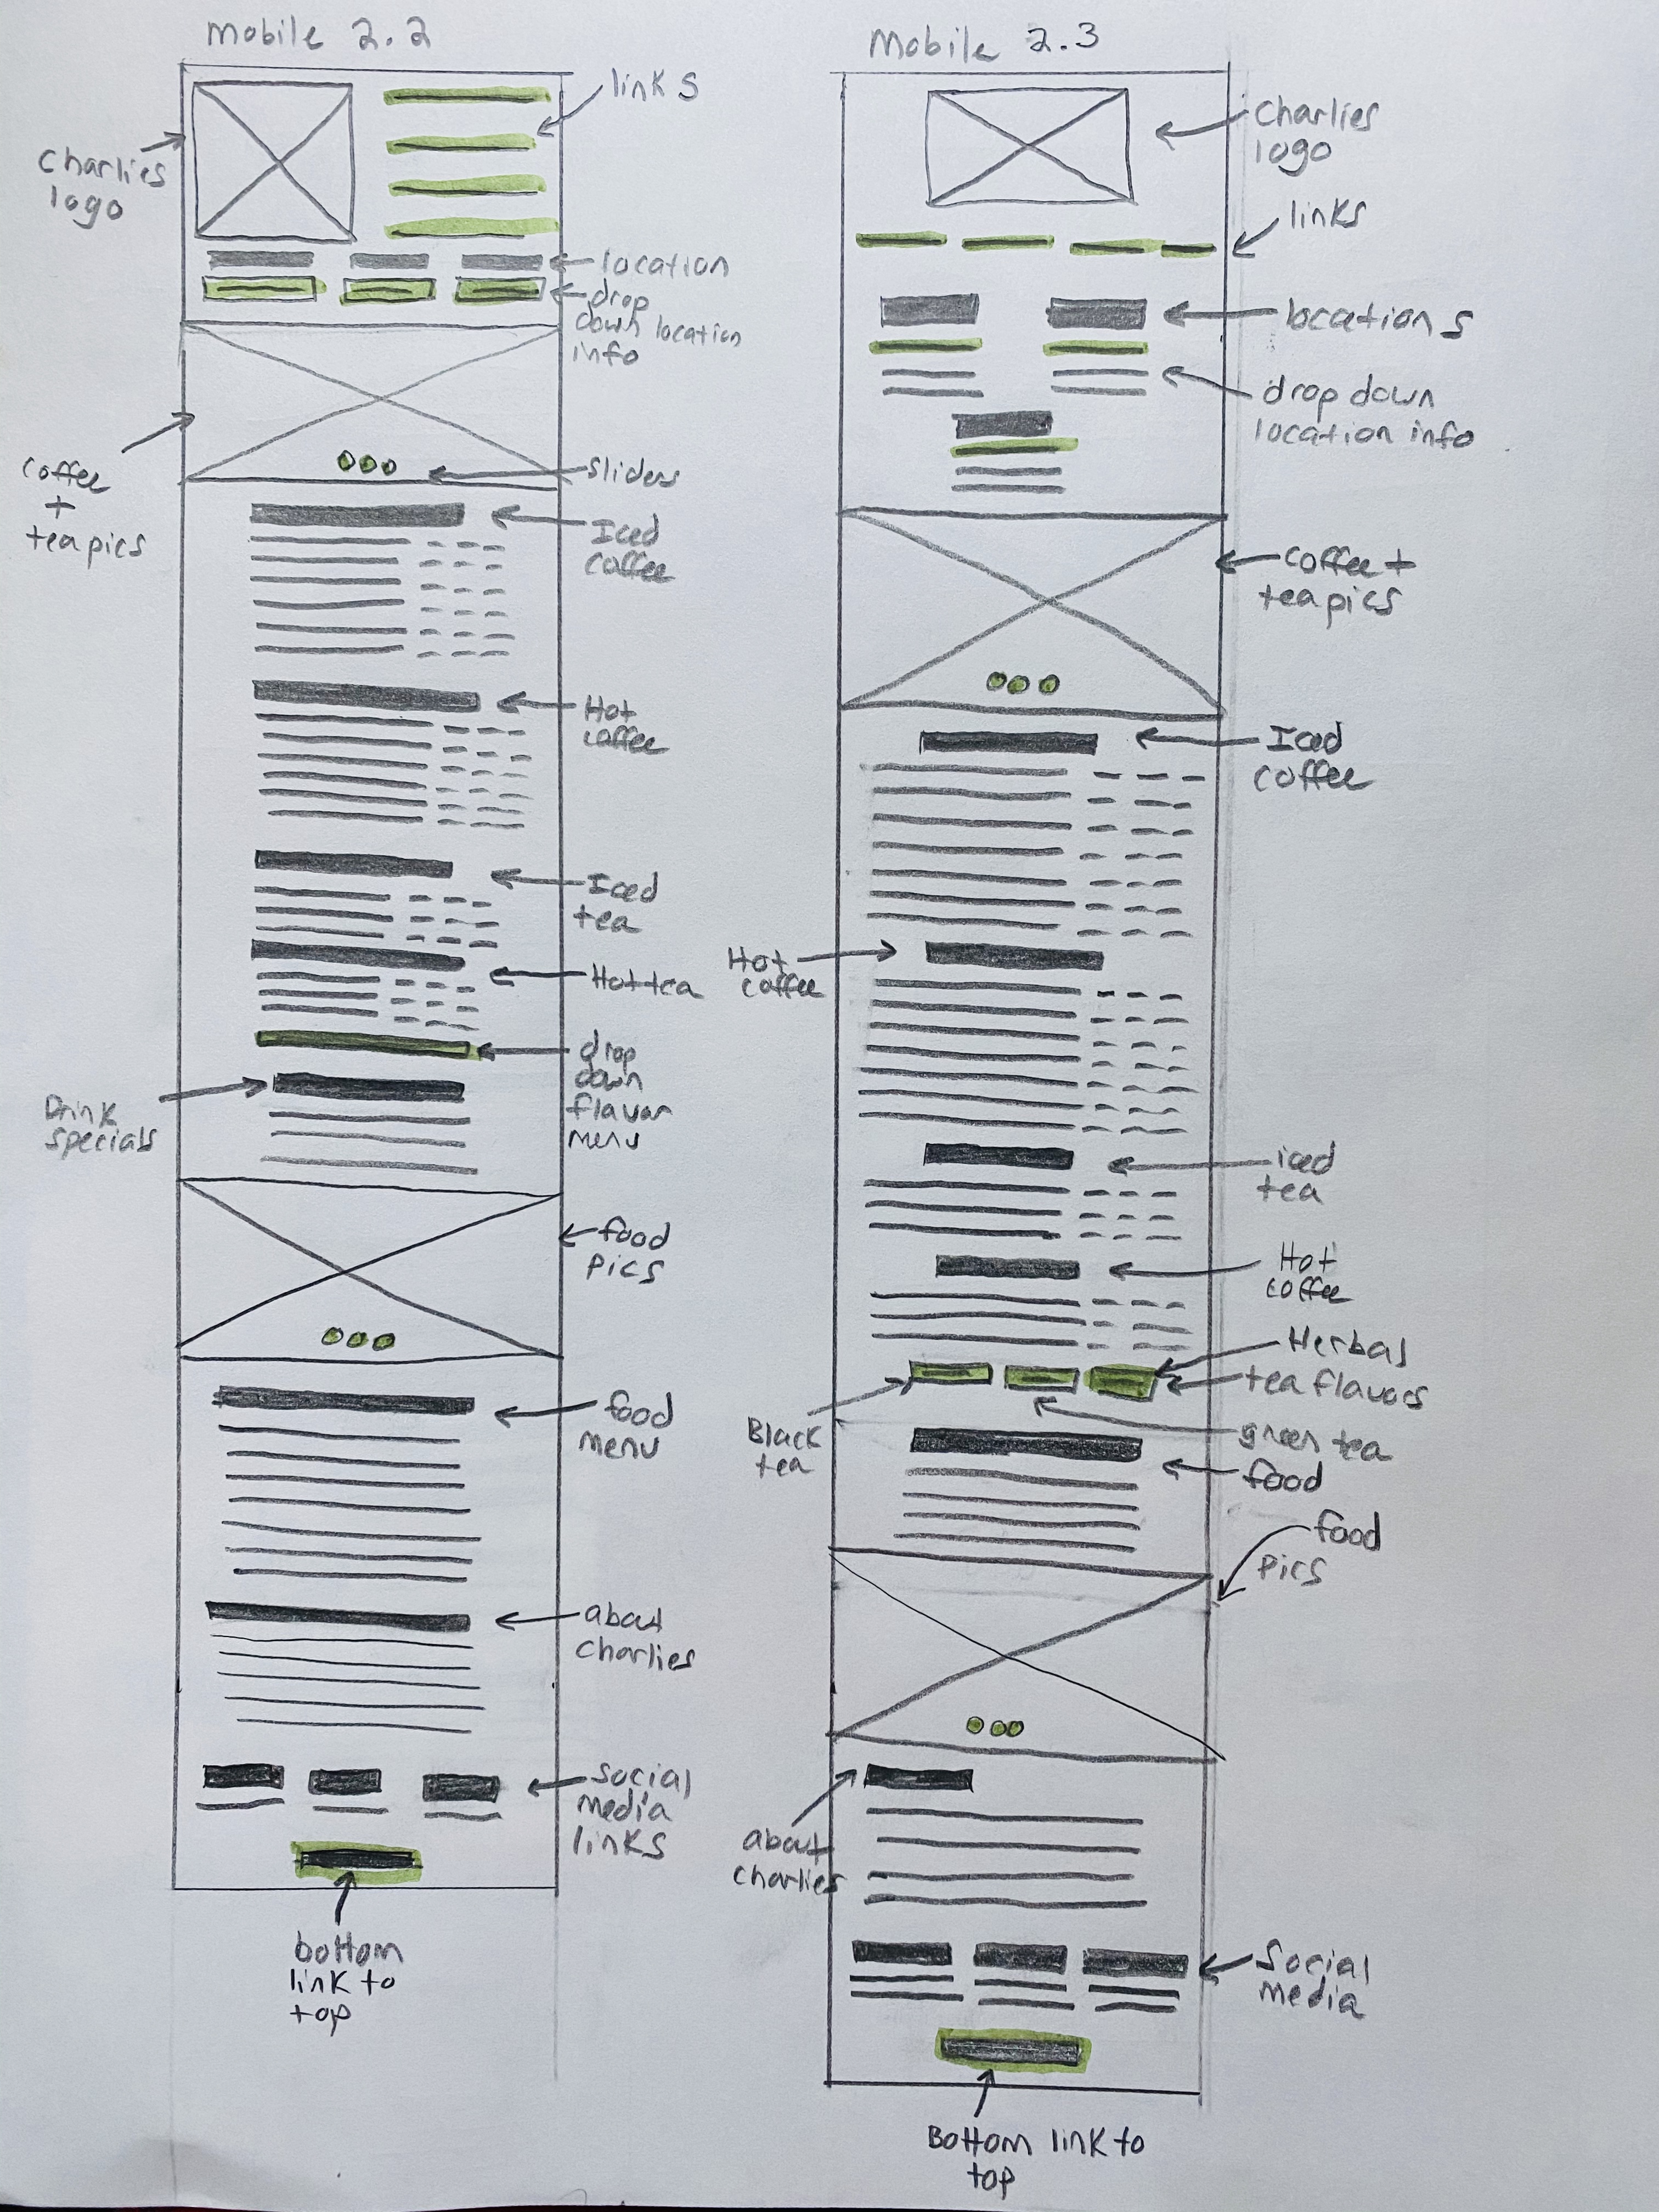 Mobile 2.2
links
Charlies
logo
location
drop
down location
info
coffee
+
tea pics
sliders
Iced
coffee
Hot
coffee
Iced
tea
Hot tea
drop
down
flavor
menu
Drink
specials
food
pics
food
menu
about
charlies
social
media
links
bottom
link to
top
Mobile 2.3
Charlies
logo
links
locations
drop down
location info
coffee +
tea pics
Iced
coffee
Hot
coffee
iced
tea
Hot
coffee
Herbal
tea flavors
Black
tea
green tea
food
food
pics
about
charlies
Social
media
Bottom link to
top